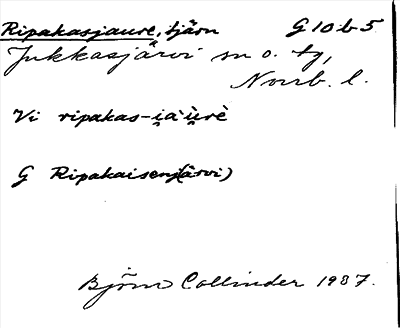 Ripakasjaure, tjärn G10b5
Jukkasjärvi sn o. tg,
Norrb. l.
Vi ripakas-i̯a'ùrè
G Ripakaisenj(ärvi)
Björn Collinder 1937.